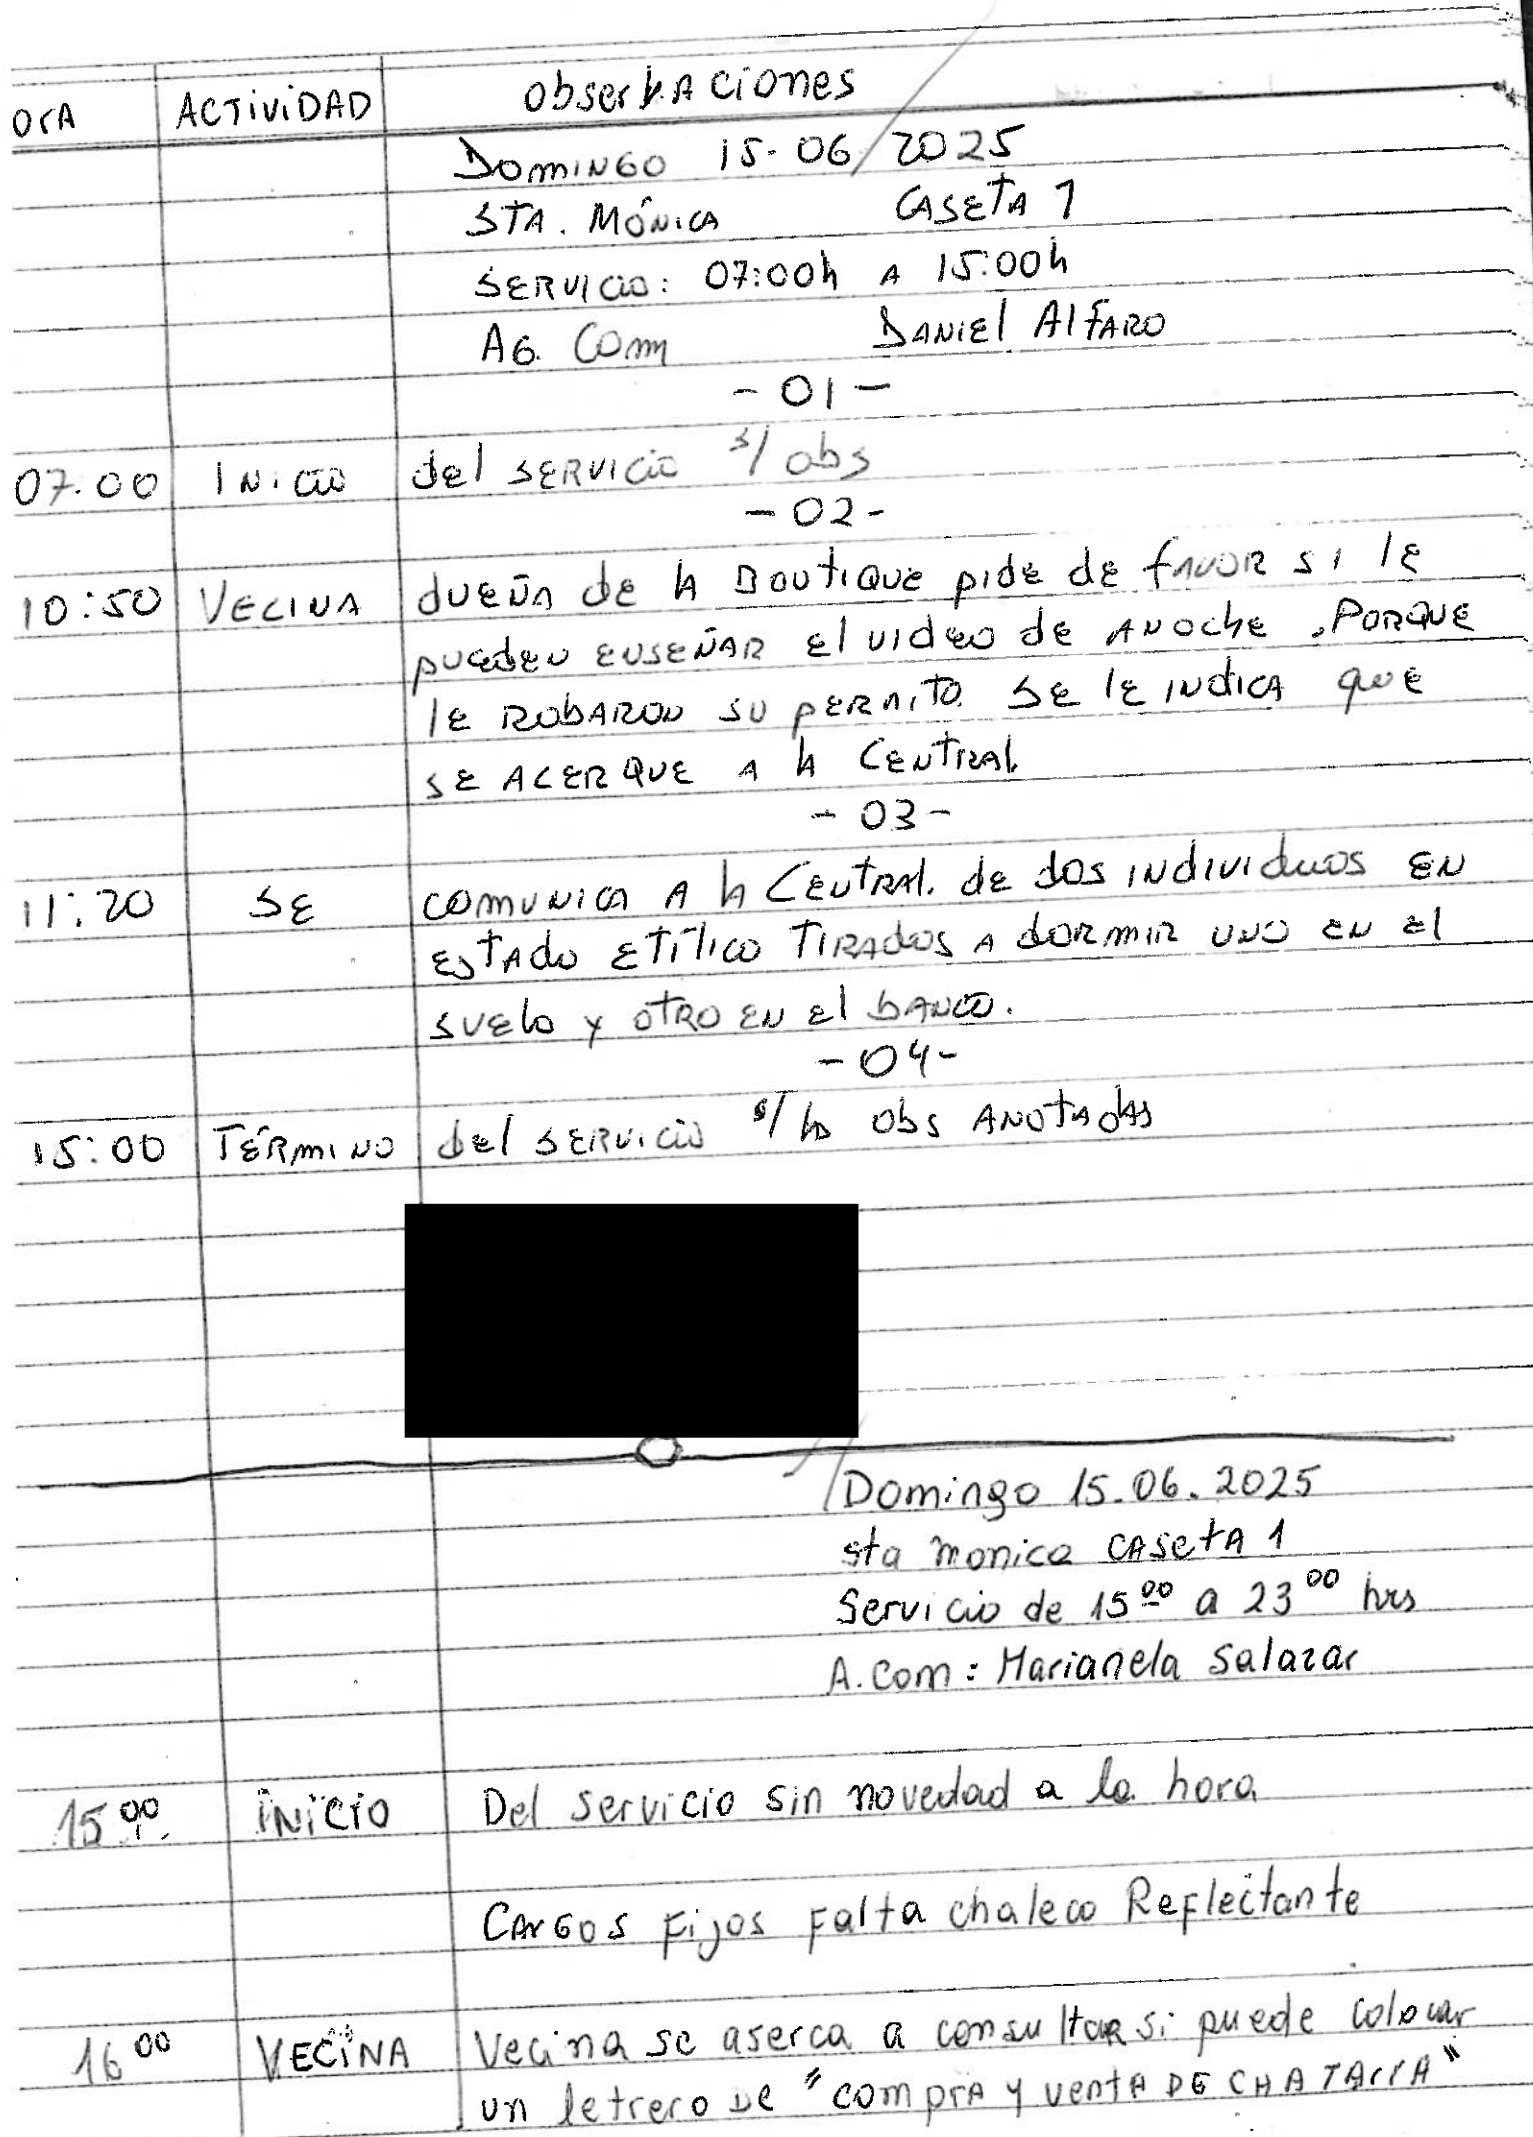 orA ACTIVIDAD ObserVAciones
DOMINGO 15-06/2025
STA. MÓNICA CASETA 1
SERVICIO: 07:00h A 15:00h
AG. COMM DANIEL AlFARO
- 01 -
07.00 INICIO del SERVICIO s/ obs
- 02 -
10:50 VECINA dUEÑA de lA BOUTIQUE pide de fAVOR si le
pueden ENSEÑAR el VIdeo de ANOche, PORQUE
le ROBARON SU pERRITO. SE le INdICA que
SE ACERQUE A lA CENTRAL
- 03 -
11:20 SE COMUNICA A lA CENTRAL. de dos INdIVIduos EN
ESTAdo ETÍlICO TIRAdos A dORMIR UNO EN El
SUElo y OTRO EN El bANCO.
- 04 -
15:00 TÉRMINO del SERVICIO s/ las obs ANOTAdAS
Domingo 15.06.2025
sta monica CASetA 1
Servicio de 15⁰⁰ a 23⁰⁰ hrs
A.Com: Marianela Salazar
15⁰⁰ INICIO Del servicio sin novedad a la hora
CArGOS Fijos Falta chaleco Reflectante
16⁰⁰ VECINA Vecina se aserca a consultar si puede colocar
un letrero DE "comprA y ventA DE CHATArrA"